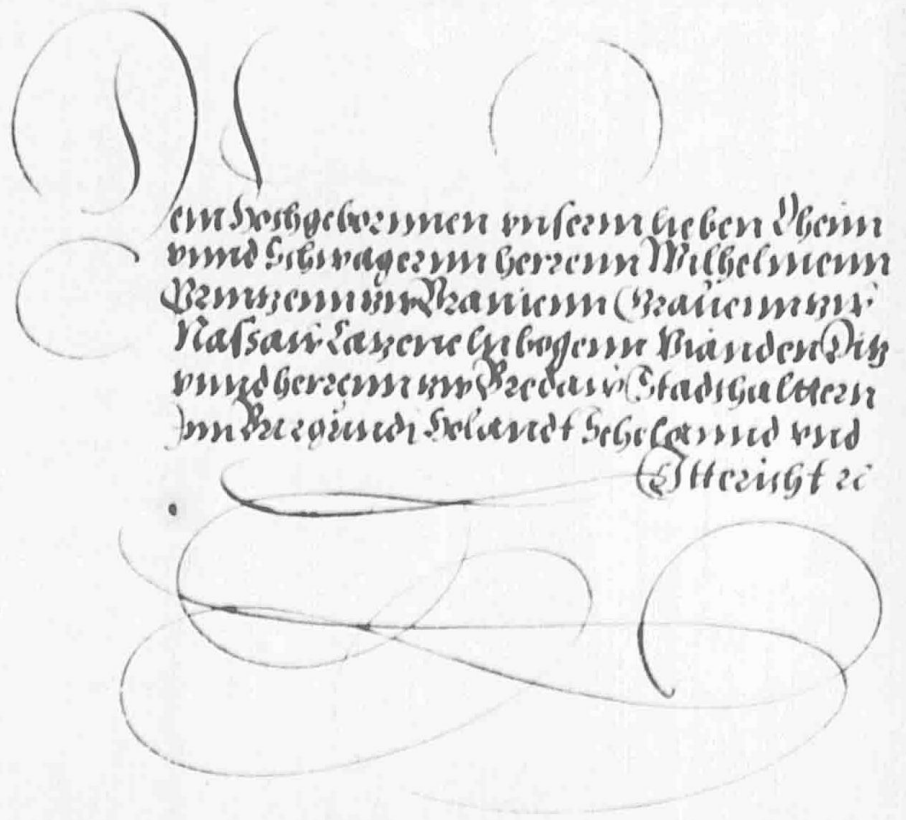 Dem Hochgebornnen vnserm lieben Oheim
vnnd Schwagernn herrenn Wilhelmenn
Printzenn zw Uranienn Grauenn zw
Nassaw Catzenelnbogenn Vianden Ditz
vnnd herrenn zw Bredaw Stadthalttern
Inn Burgundi Holandt Sehelannd vnd
Vttericht ꝛc